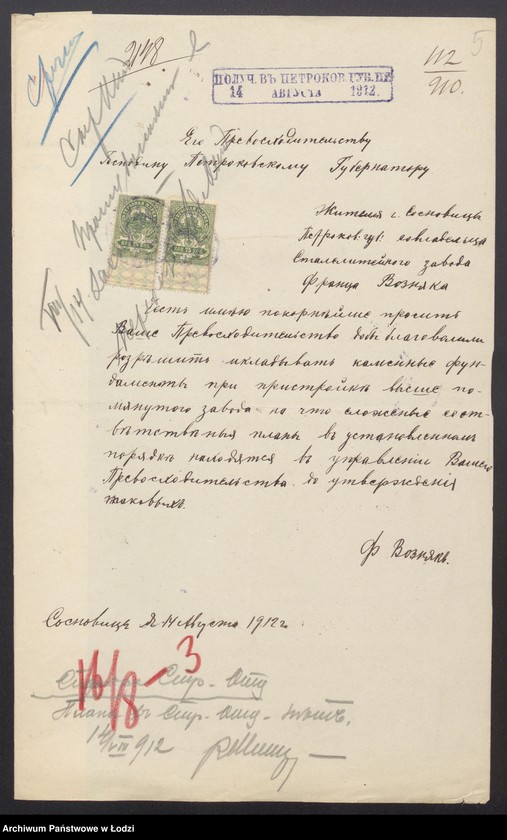 5
Срочно
2148
112
910.
ПОЛУЧ. ВЪ ПЕТРОКОВ. ГУБ. ПР.
14 АВГУСТА 1912.
Его Превосходительству
Господину Петроковскому Губернатору
Жителя г. Сосновицы
Петроков. губ. совладельца
Сталелитейного завода
Франца Возняка
Честь имѣю покорнѣйше просить
Ваше Превосходительство дабы благоволили
розрѣшить укладывать каменные фун-
даменты при пристройкѣ выше по-
мянутого завода на что сложеные соот-
вѣтственыя планы въ установленномъ
порядкѣ находятся въ управленіи Вашего
Превосходительства до утвержденія
таковыхъ.
Ф Вознякъ.
Сосновицы 14 Августа 1912 г.
16/8 – 3
Стр. Отд
Планы въ Стр. Отд.
14/VIII 912
Archiwum Państwowe w Łodzi